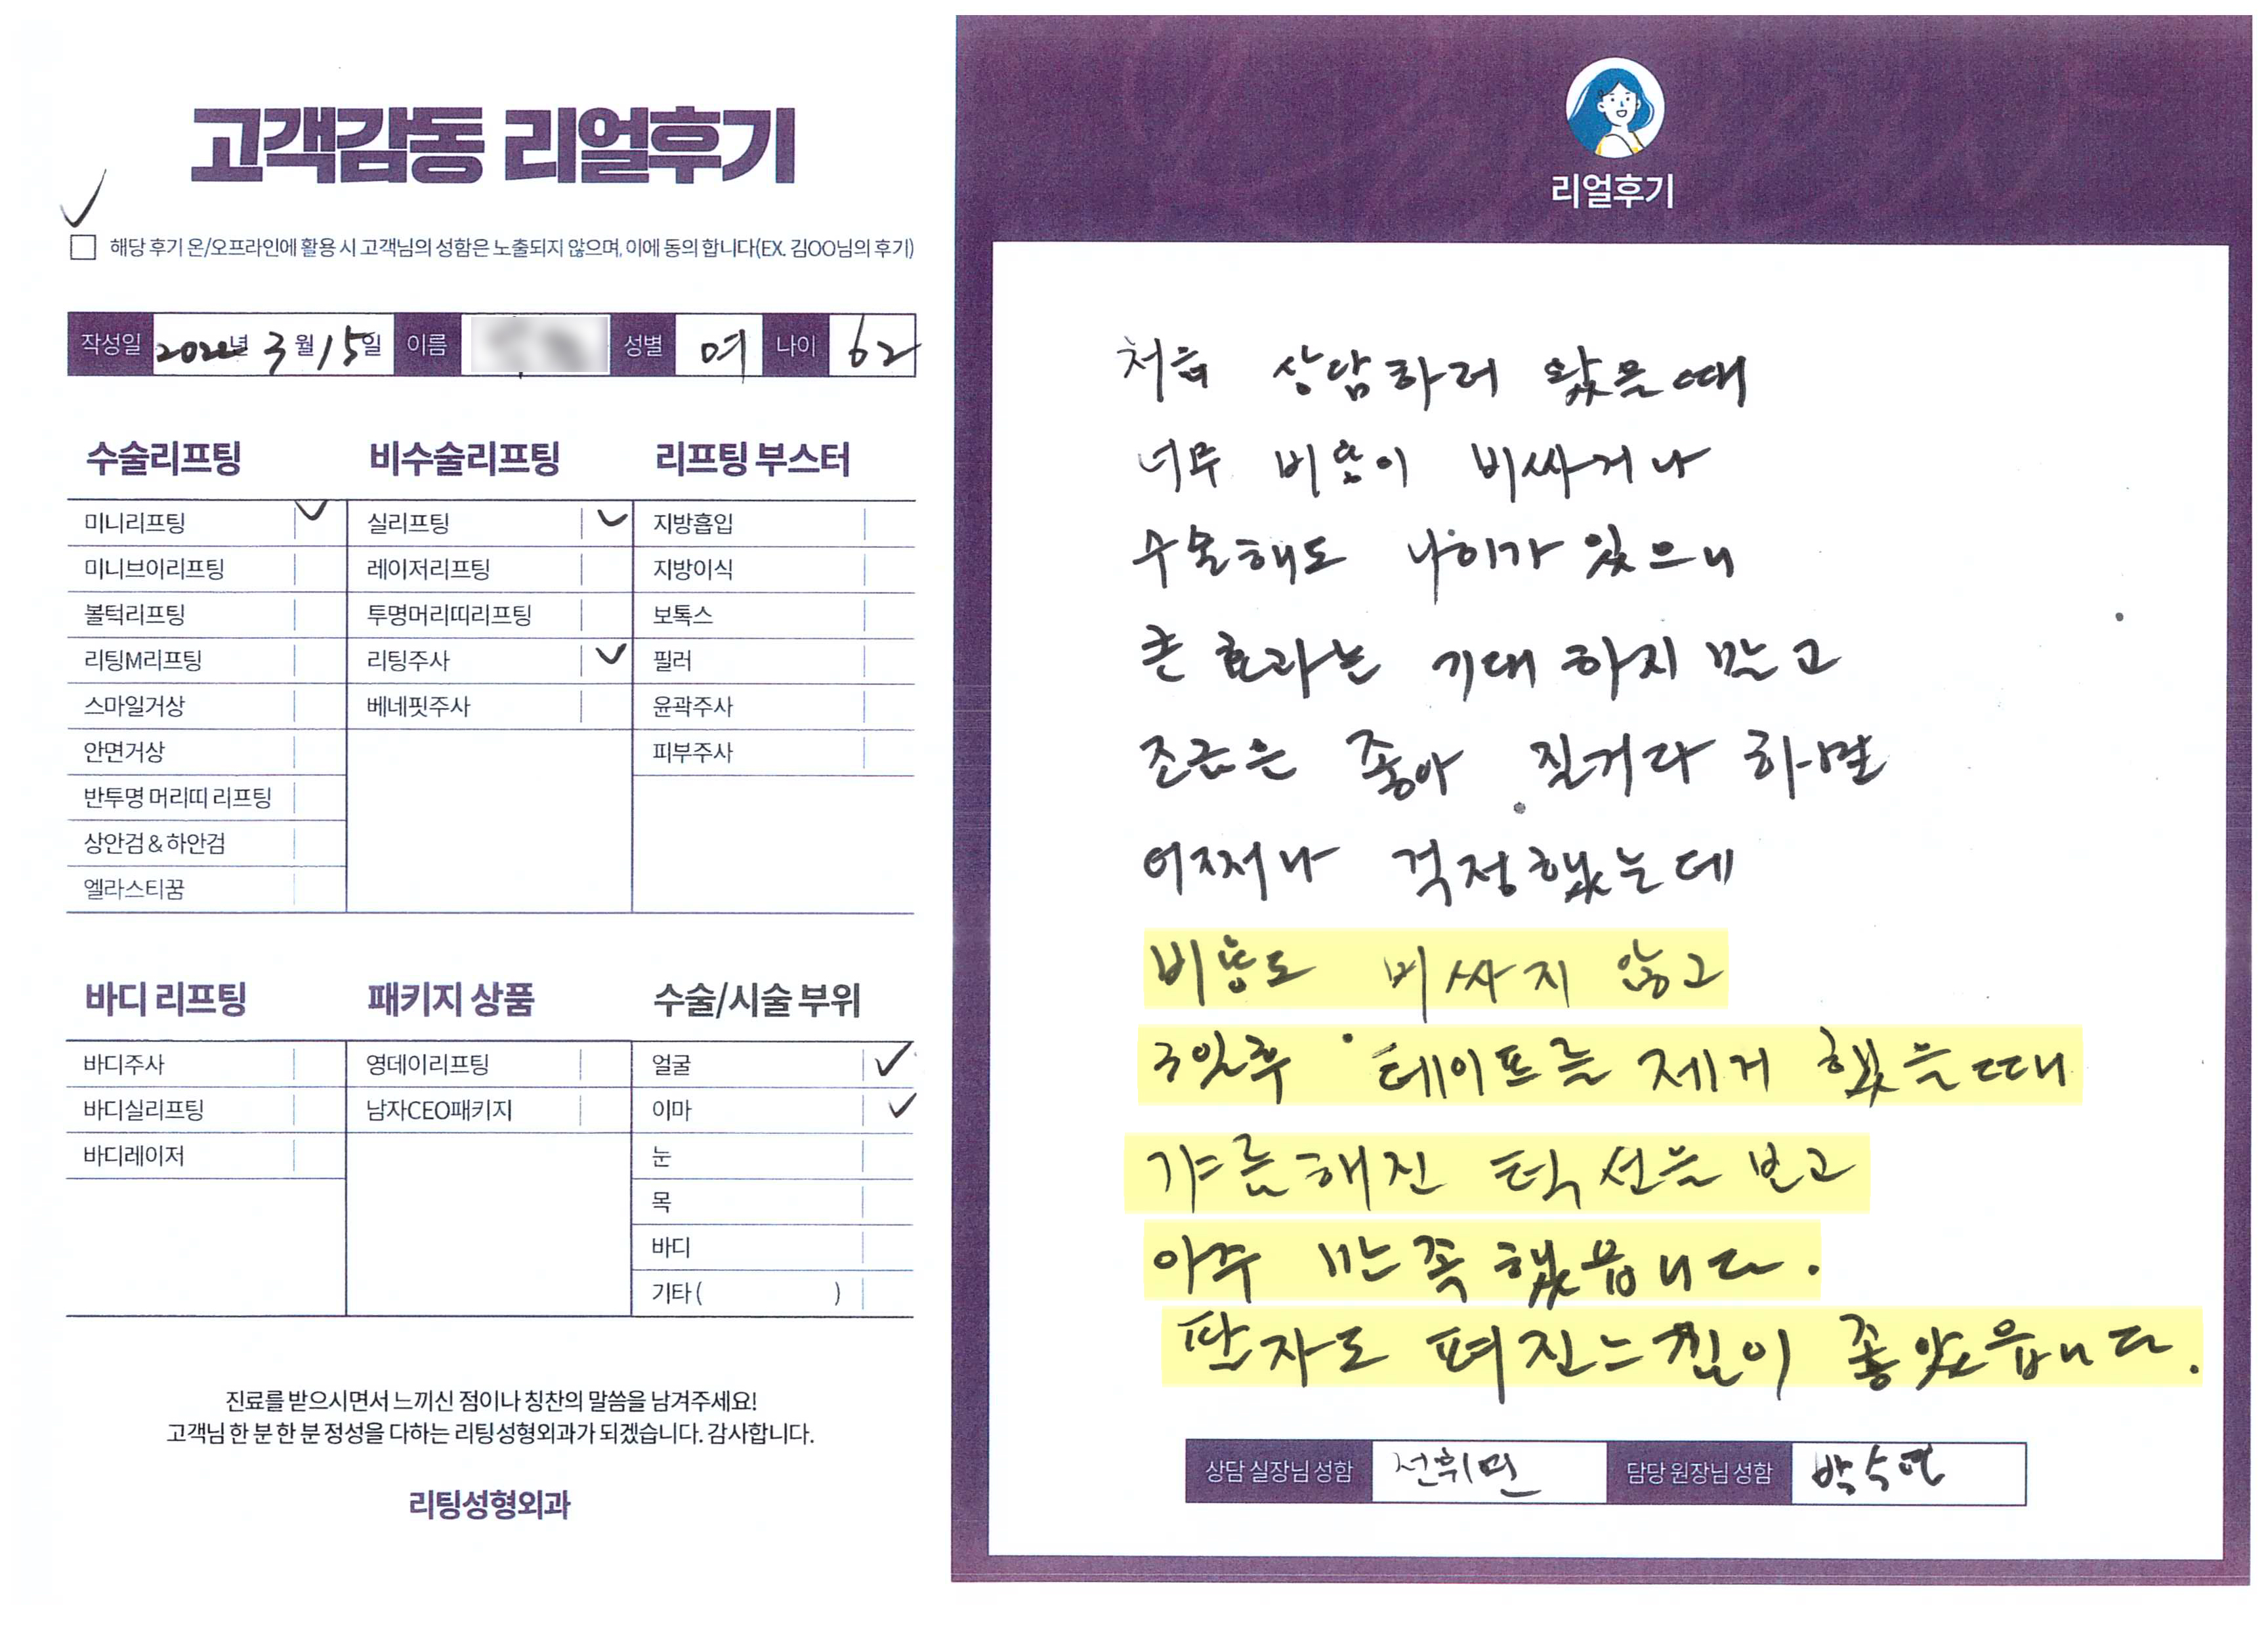 고객감동 리얼후기
✓
☐ 해당 후기 온/오프라인에 활용 시 고객님의 성함은 노출되지 않으며, 이에 동의 합니다(EX. 김OO님의 후기)
작성일 2022년 3월 15일 이름 성별 여 나이 62
수술리프팅 비수술리프팅 리프팅 부스터
미니리프팅 ✓ 실리프팅 ✓ 지방흡입
미니브이리프팅 레이저리프팅 지방이식
볼턱리프팅 투명머리띠리프팅 보톡스
리팅M리프팅 리팅주사 ✓ 필러
스마일거상 베네핏주사 윤곽주사
안면거상 피부주사
반투명 머리띠 리프팅
상안검 & 하안검
엘라스티꿈
바디 리프팅 패키지 상품 수술/시술 부위
바디주사 영데이리프팅 얼굴 ✓
바디실리프팅 남자CEO패키지 이마 ✓
바디레이저 눈
목
바디
기타 ( )
진료를 받으시면서 느끼신 점이나 칭찬의 말씀을 남겨주세요!
고객님 한 분 한 분 정성을 다하는 리팅성형외과가 되겠습니다. 감사합니다.
리팅성형외과
리얼후기
처음 상담하러 왔을때
너무 비용이 비싸거나
수술해도 나이가 있으니
큰 효과는 기대 하지 말고
조금은 좋아 질거다 하면
어쩌나 걱정했는데
비용도 비싸지 않고
3일후 테이프를 제거 했을때
갸름해진 턱선을 보고
아주 만족했읍니다.
팔자도 펴진느낌이 좋았읍니다.
상담 실장님 성함 선휘민 담당 원장님 성함 박수연